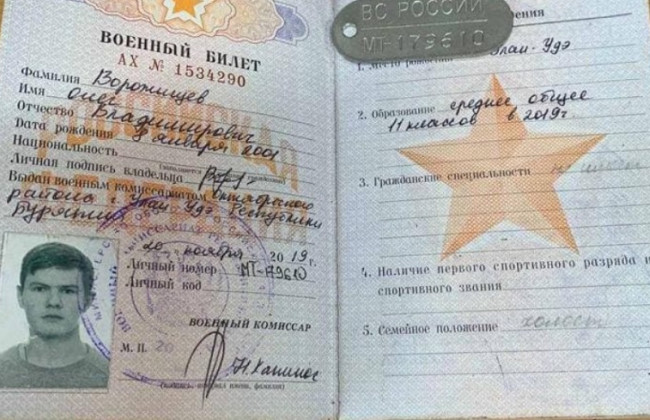 ВОЕННЫЙ БИЛЕТ
АХ № 1534290
Фамилия Ворожищев
Имя Олег
Отчество Владимирович
Дата рождения 8 января 2001
Национальность
Личная подпись владельца
Выдан военным комиссариатом Октябрьского
района г. Улан-Удэ Республики
Бурятия
20 ноября 2019 г.
Личный номер МТ-179610
Личный код
ВОЕННЫЙ КОМИССАР
М. П.
ВС РОССИИ
МТ-179610
1. Место Улан-Удэ
2. Образование среднее общее
11 классов в 2019г.
3. Гражданские специальности
4. Наличие первого спортивного разряда и
спортивного звания
5. Семейное положение холост